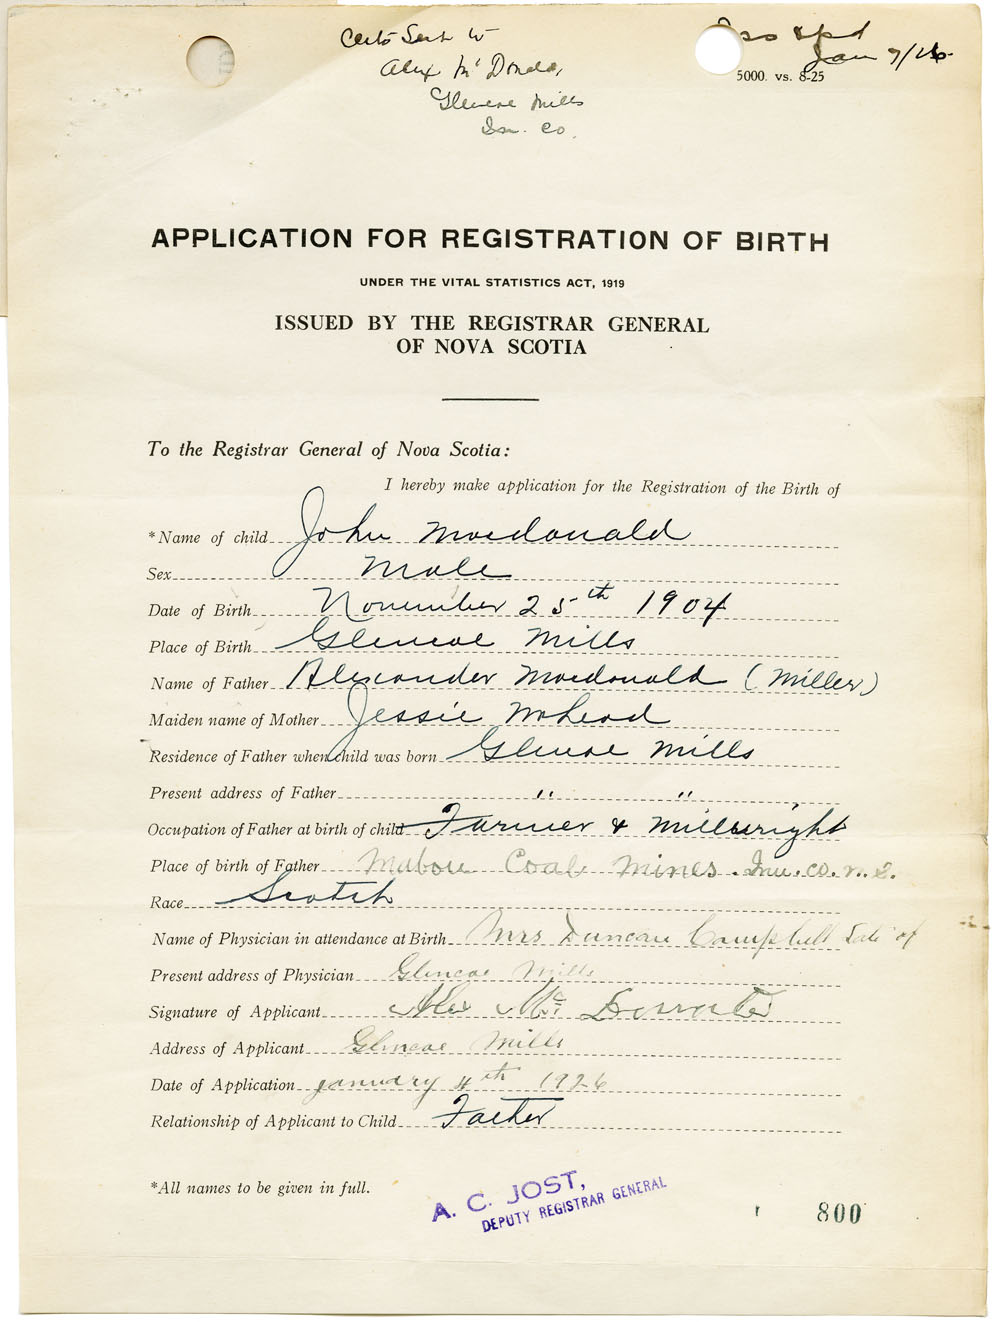 Certs Sent to
Alex McDonald,
Glencoe Mills
Inv. Co.
Jan 7/26
5000. vs. 8-25
APPLICATION FOR REGISTRATION OF BIRTH
UNDER THE VITAL STATISTICS ACT, 1919
ISSUED BY THE REGISTRAR GENERAL
OF NOVA SCOTIA
To the Registrar General of Nova Scotia:
I hereby make application for the Registration of the Birth of
*Name of child John Macdonald
Sex Male
Date of Birth November 25th 1904
Place of Birth Glencoe Mills
Name of Father Alexander Macdonald (Miller)
Maiden name of Mother Jessie McLeod
Residence of Father when child was born Glencoe Mills
Present address of Father " "
Occupation of Father at birth of child Farmer & Millwright
Place of birth of Father Mabou Coal Mines. Inv. Co. N.S.
Race Scotch
Name of Physician in attendance at Birth Mrs Duncan Campbell Late of
Present address of Physician Glencoe Mills
Signature of Applicant Alex Mc Donald
Address of Applicant Glencoe Mills
Date of Application January 4th 1926
Relationship of Applicant to Child Father
*All names to be given in full.
A. C. JOST,
DEPUTY REGISTRAR GENERAL
800